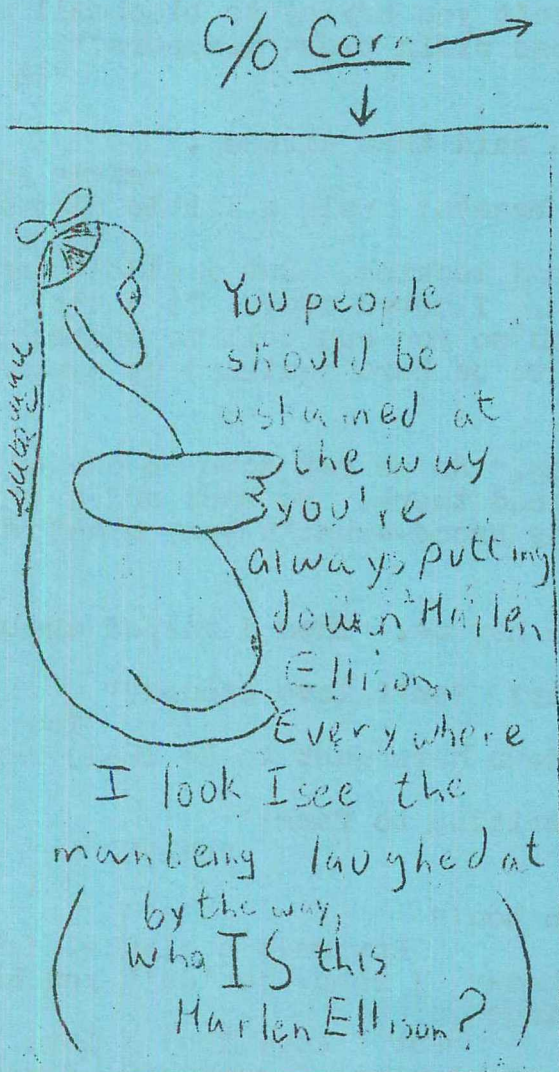 C/o Corn
You people
should be
ashamed at
the way
you're
always putting
down Harlen
Ellison.
Everywhere
I look I see the
man being laughed at
(by the way,
who IS this
Harlen Ellison?)